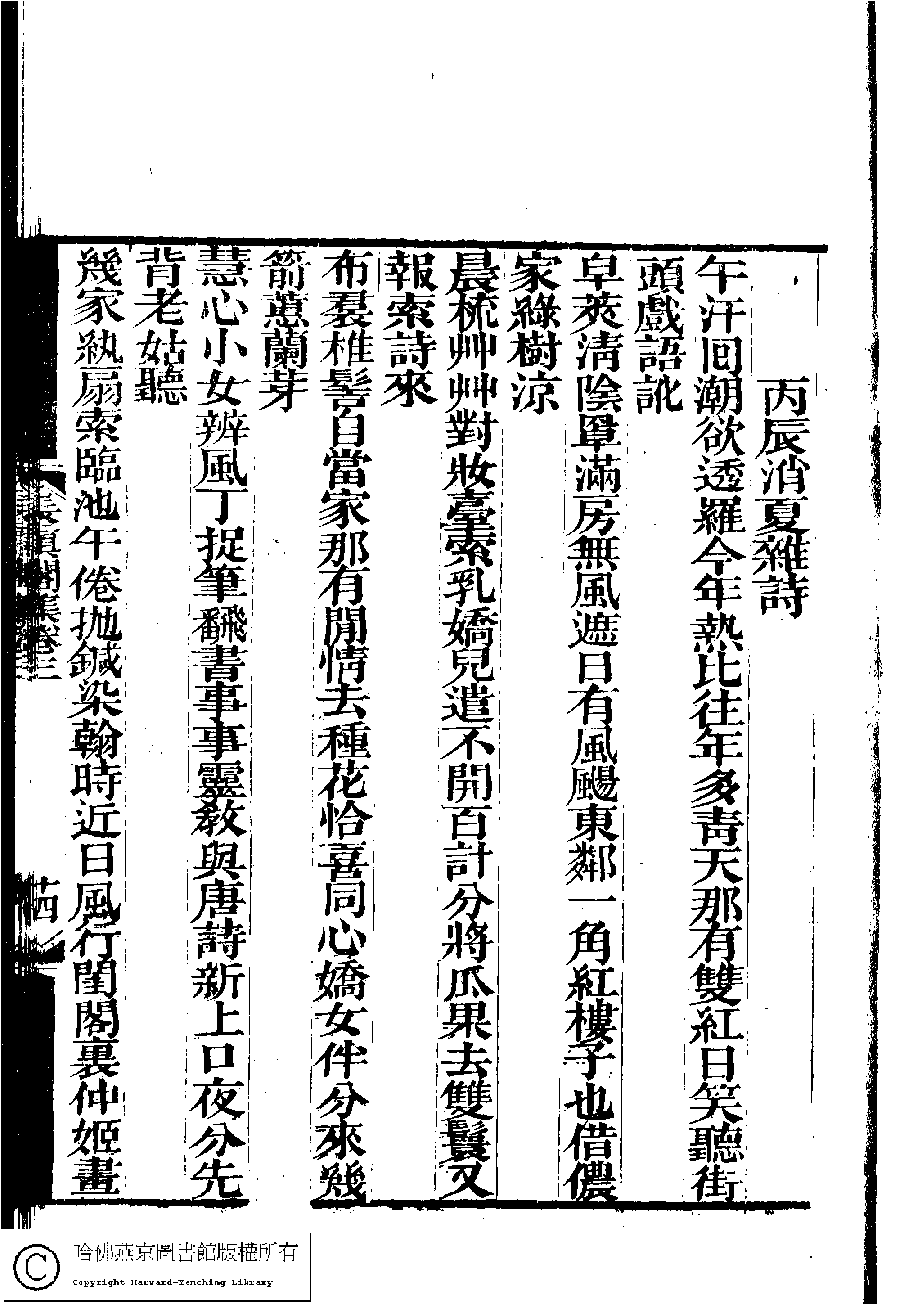 丙辰消夏雜詩
午汗囘潮欲透羅今年熱比往年多靑天那有雙紅日笑聽街
頭戲語訛
皁莢淸陰罩滿房無風遮日有風颺東鄰一角紅樓子也借儂
家綠樹涼
晨梳艸艸對妝臺索乳嬌兒遣不開百計分將瓜果去雙鬟又
報索詩來
布裠椎髻自當家那有閒情去種花恰喜同心嬌女伴分來幾
箭蕙蘭芽
慧心小女辨風丁捉筆飜書事事靈敎與唐詩新上口夜分先
背老姑聽
幾家紈扇索臨池午倦拋鍼染翰時近日風行閨閣裏仲姬畫
長眞閣集卷三
十四
哈佛燕京圖書館版權所有
Copyright Harvard-Yenching Library